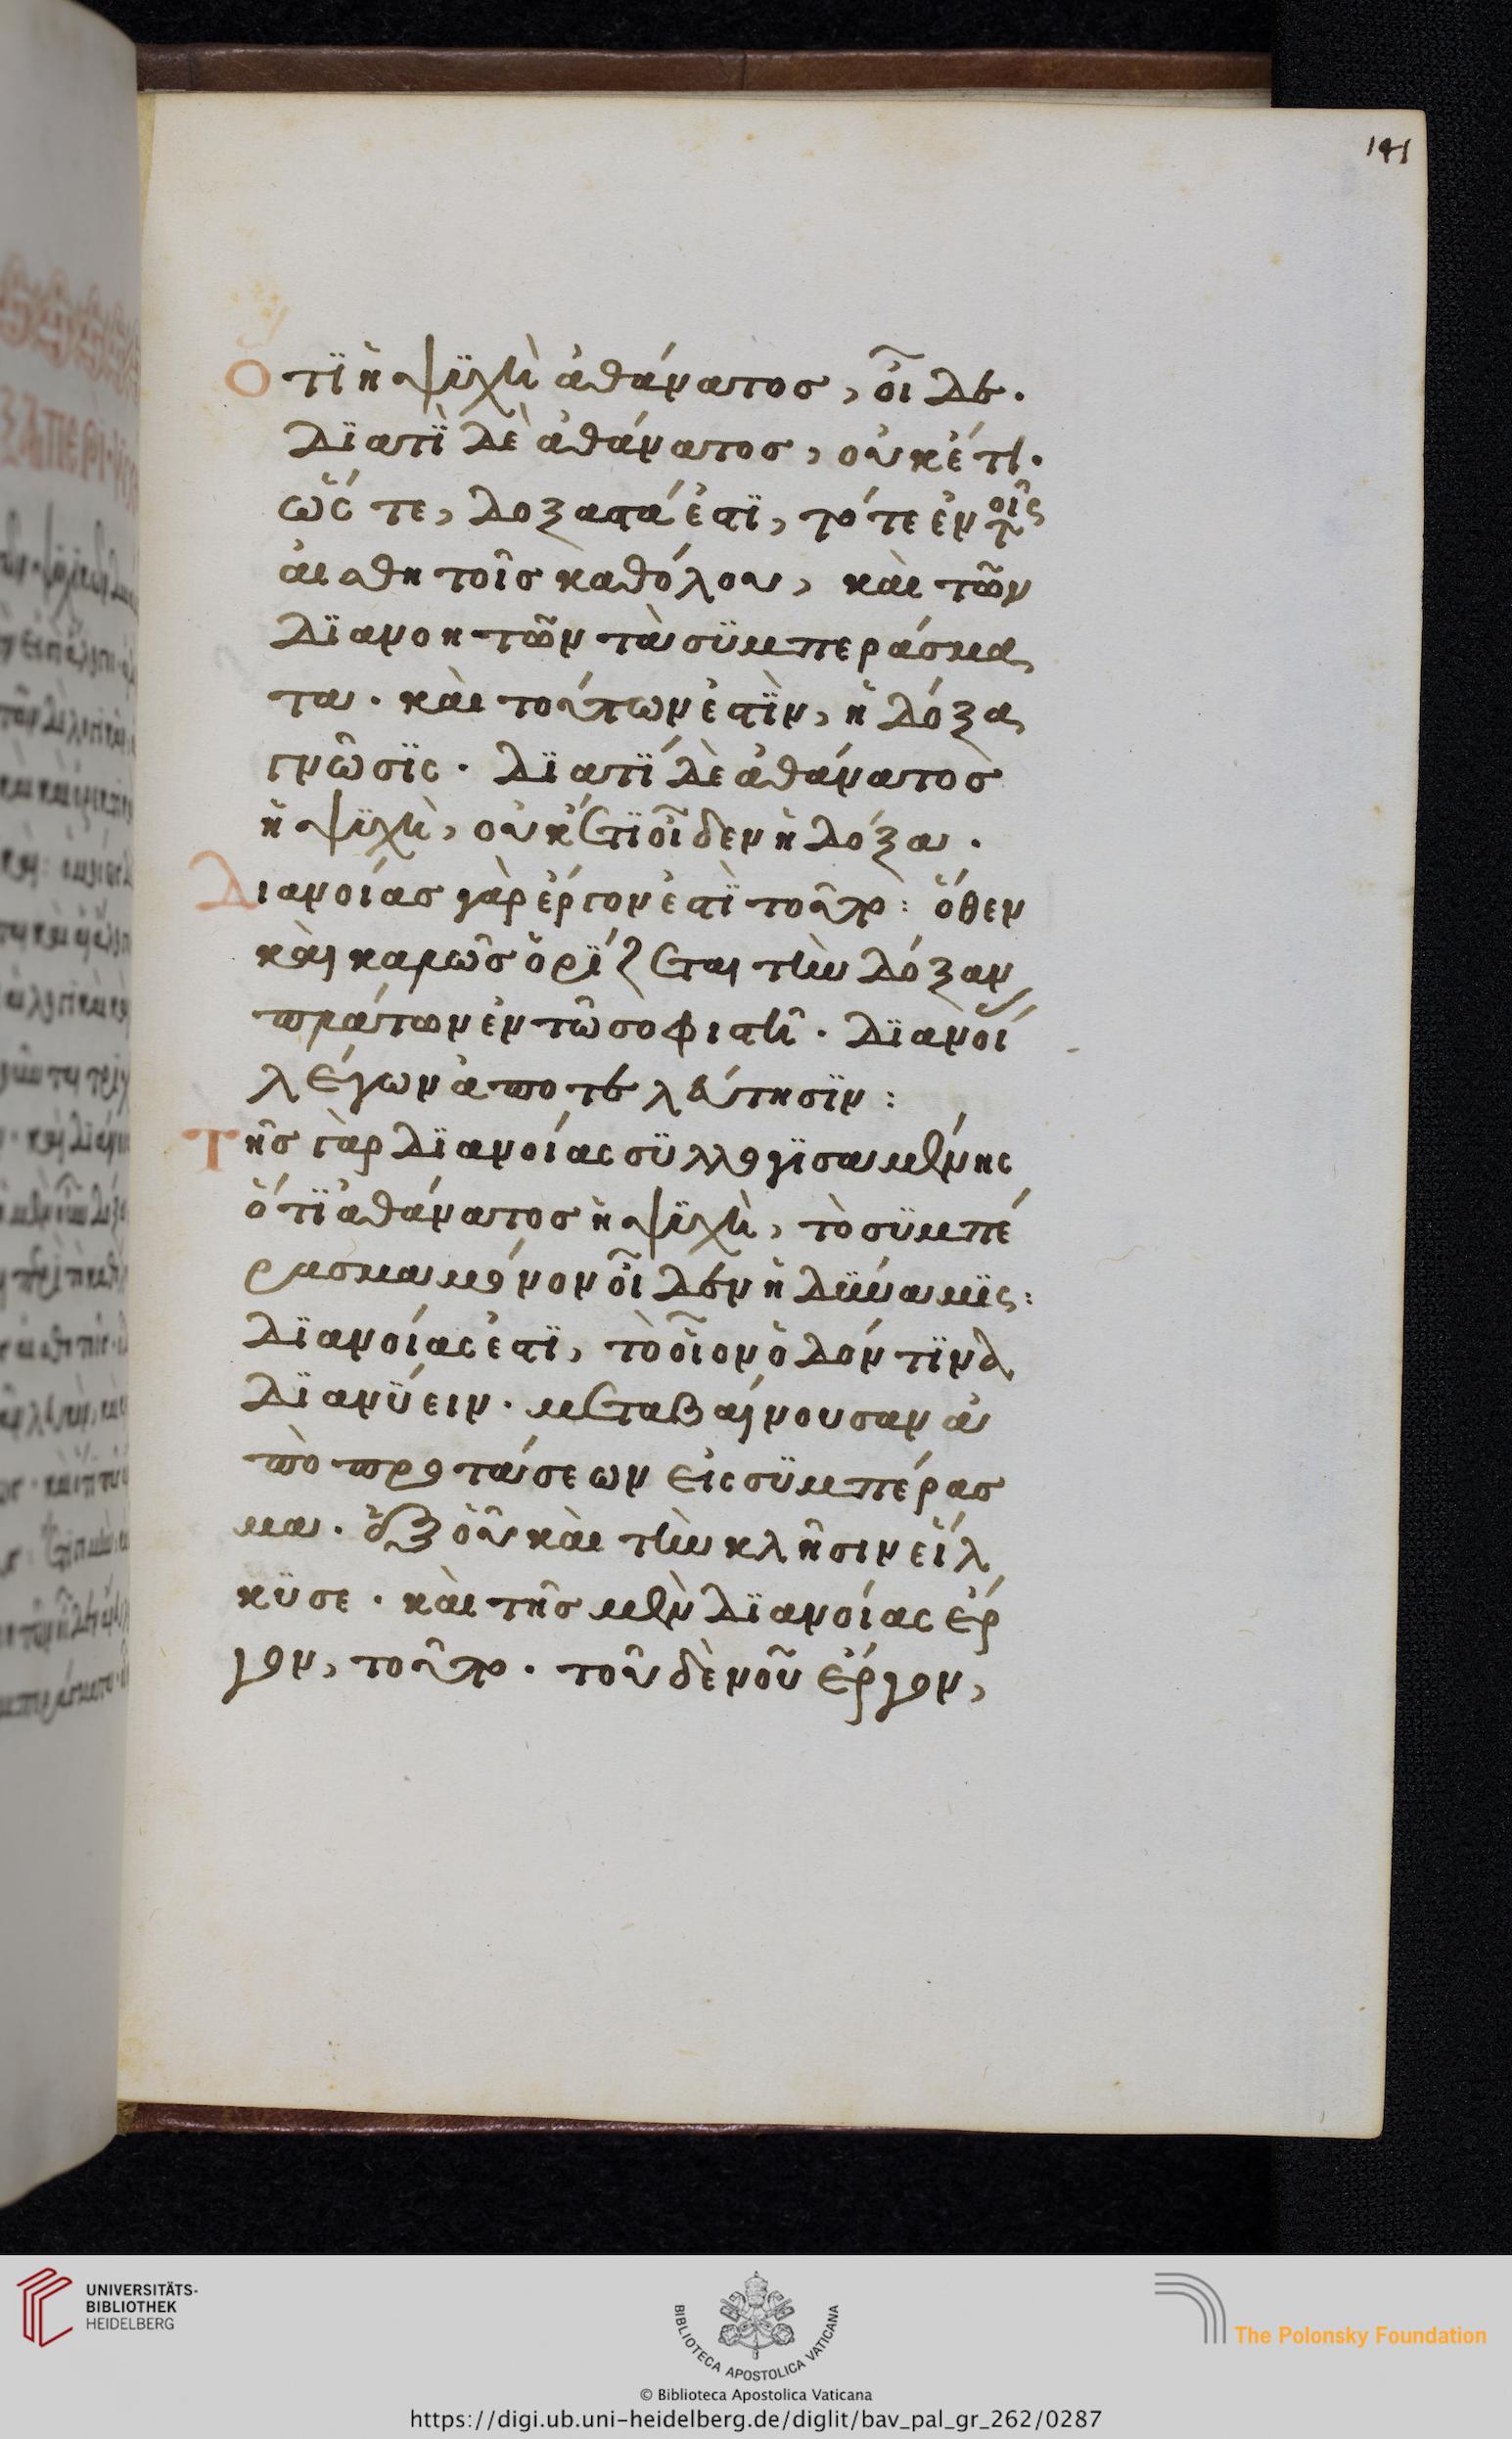 141
Ὅτϊ ἡ ψϋχὴ ἀθάνατος, οἶδε.
Δϊατϊ δὲ ἀθάνατος, οὐκέτι.
ὥστε, δοξαστά ἐστϊ, τό τε ἐν τοῖς
ἀισθητοῖς καθόλου, καὶ τῶν
δϊανοητῶν τὰ σϋμπεράσμα
τα. καὶ τούτων ἐστὶν, ἡ δόξα
γνῶσϊς. Δϊατΐ δὲ ἀθάνατος
ἡ ψϋχὴ, οὐκέτϊ οἶδεν ἡ δόξα.
Διανοίας γὰρ ἔργον ἐστὶ τοῦτο: ὅθεν
καὶ καλῶς ὁρΐζεται τὴν δόξαν
πλάτων ἐν τῶ σοφιστῆ. Δϊανοί
λέγων ἀποτελεύτησϊν:
Τῆς γὰρ δϊανοίας σϋλλογϊσαμένης
ὅτϊ ἀθάνατος ἡ ψϋχὴ, τὸ σϋμπέ
ρασμα μόνον οἶδεν ἡ δύναμϊς:
Δϊανοίας ἐστϊ, τὸ οἷον ὁδόν τϊνα
δϊανΰειν. μεταβαίνουσαν ἀ
πὸ προτάσεων εἰς σϋμπέρασ
μα. ὅθεν οὖν καὶ τὴν κλῆσιν εἵλ
κϋσε. καὶ τῆς μὲν δϊανοίας ἔρ
γον, τοῦτο. τοῦ δὲ νοῦ ἔργον,
UNIVERSITÄTS-
BIBLIOTHEK
HEIDELBERG
BIBLIOTECA APOSTOLICA VATICANA
© Biblioteca Apostolica Vaticana
The Polonsky Foundation
https://digi.ub.uni-heidelberg.de/diglit/bav_pal_gr_262/0287